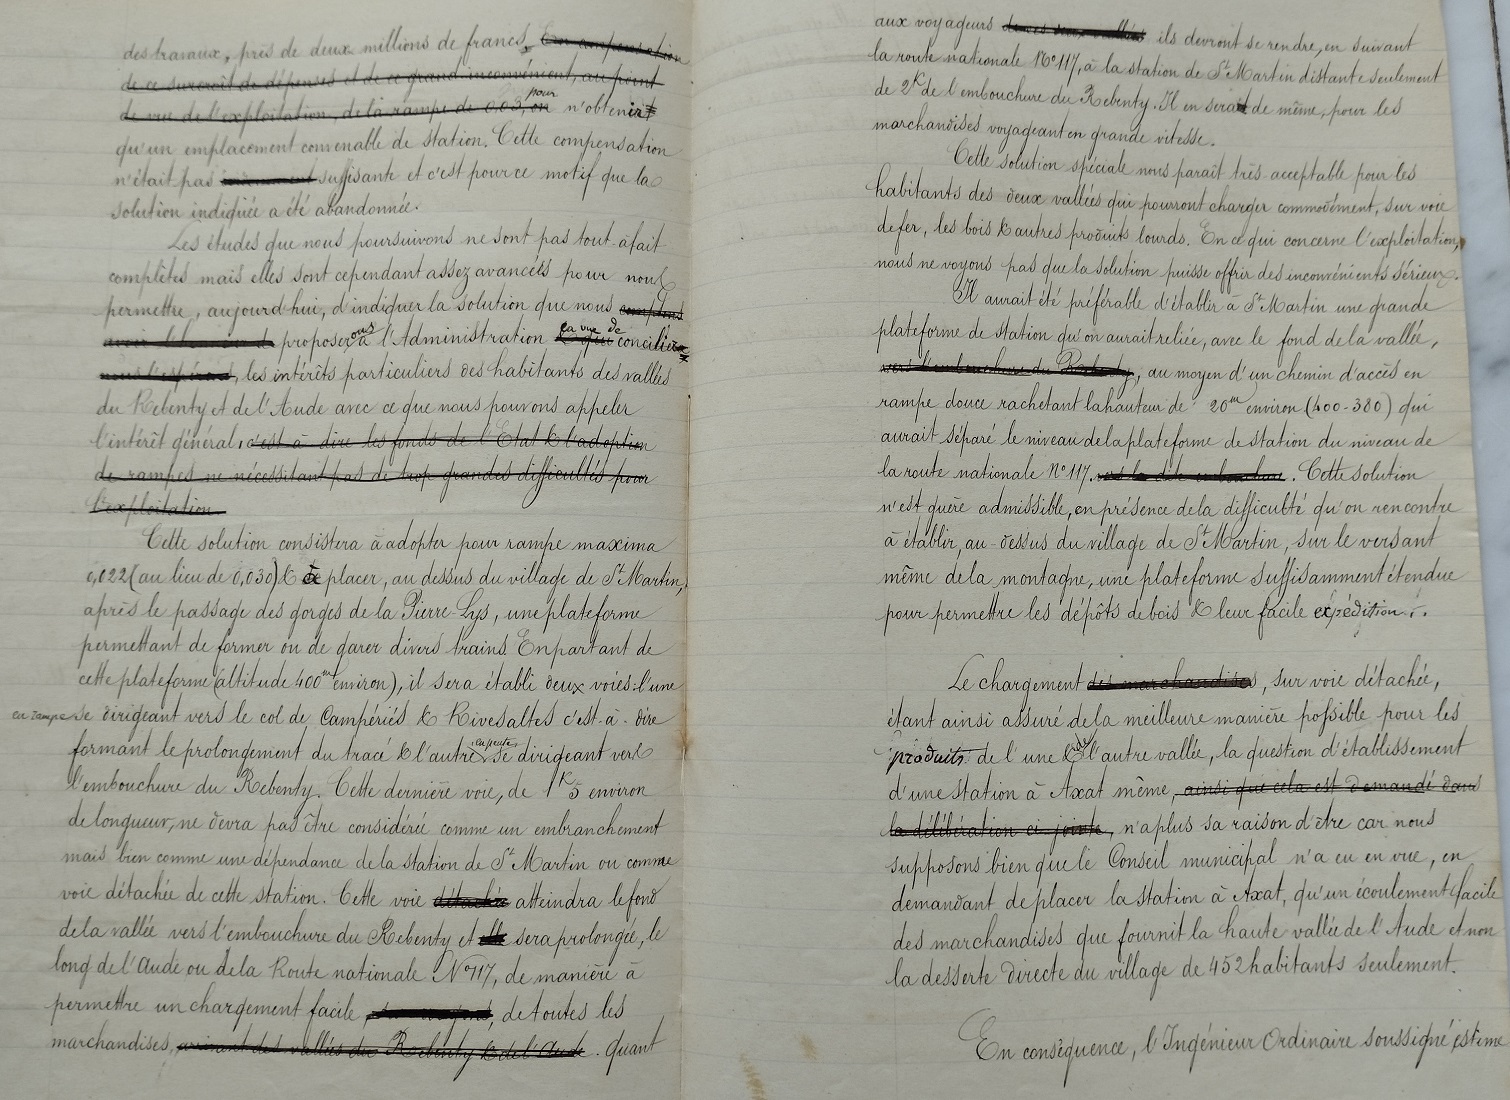 des travaux, près de deux millions de francs. En compensation
de ce surcroît de dépenses et de ce grand inconvénient, au point
de vue de l'exploitation, de la rampe de 0.03, on pour n'obtenir
qu'un emplacement convenable de station. Cette compensation
n'était pas suffisante et c'est pour ce motif que la
solution indiquée a été abandonnée.
Les études que nous poursuivons ne sont pas tout-à-fait
complètes mais elles sont cependant assez avancées pour nous
permettre, aujourd'hui, d'indiquer la solution que nous comptons
avoir l'honneur de proposerons à l'Administration en vue de & qui concilier
nous l'espérons, les intérêts particuliers des habitants des vallées
du Rebenty et de l'Aude avec ce que nous pouvons appeler
l'intérêt général, c'est à dire les fonds de l'Etat & l'adoption
de rampes ne nécessitant pas de trop grandes difficultés pour
l'exploitation.
Cette solution consistera à adopter pour rampe maxima
0,022 (au lieu de 0,030) & à placer, au dessus du village de St Martin,
après le passage des gorges de la Pierre-Lys, une plateforme
permettant de former ou de garer divers trains. En partant de
cette plateforme (altitude 400m environ), il sera établi deux voies: l'une
en rampe se dirigeant vers le col de Campériés & Rivesaltes c'est-à-dire
formant le prolongement du tracé & l'autre en pente se dirigeant vers
l'embouchure du Rebenty. Cette dernière voie, de 1K5 environ
de longueur, ne devra pas être considérée comme un embranchement
mais bien comme une dépendance de la station de St Martin ou comme
voie détachée de cette station. Cette voie détachée atteindra le fond
de la vallée vers l'embouchure du Rebenty et elle sera prolongée, le
long de l'Aude ou de la Route nationale No 117, de manière à
permettre un chargement facile, sur wagons, de toutes les
marchandises, arrivant des vallées du Rebenty & de l'Aude. Quant
aux voyageurs de ces deux vallées ils devront se rendre, en suivant
la route nationale No 117, à la station de St Martin distante seulement
de 2K de l'embouchure du Rebenty. Il en serait de même, pour les
marchandises voyageant en grande vitesse.
Cette solution spéciale nous parait très-acceptable pour les
habitants des deux vallées qui pourront charger commodément, sur voie
de fer, les bois & autres produits lourds. En ce qui concerne l'exploitation,
nous ne voyons pas que la solution puisse offrir des inconvénients sérieux.
Il aurait été préférable d'établir à St Martin une grande
plateforme de station qu'on aurait reliée, avec le fond de la vallée,
vers l'embouchure du Rebenty, au moyen d'un chemin d'accès en
rampe douce rachetant la hauteur de 20m environ (400-380) qui
aurait séparé le niveau de la plateforme de station du niveau de
la route nationale No 117 vers la dite embouchure. Cette solution
n'est guère admissible, en présence de la difficulté qu'on rencontre
à établir, au-dessus du village de St Martin, sur le versant
même de la montagne, une plateforme suffisamment étendue
pour permettre les dépôts de bois & leur facile expédition.
Le chargement des marchandises, sur voie détachée,
étant ainsi assuré de la meilleure manière possible pour les
produits de l'une & de l'autre vallée, la question d'établissement
d'une station à Axat même, ainsi que cela est demandé dans
la délibération ci-jointe, n'a plus sa raison d'être car nous
supposons bien que le Conseil municipal n'a eu en vue, en
demandant de placer la station à Axat, qu'un écoulement facile
des marchandises que fournit la haute vallée de l'Aude et non
la desserte directe du village de 452 habitants seulement.
En conséquence, l'Ingénieur Ordinaire soussigné estime